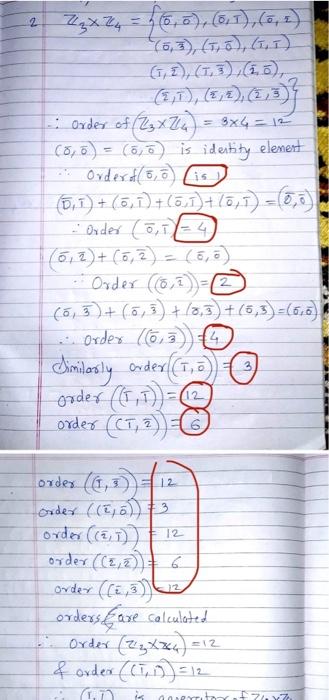 2 Z₃×Z₄ = {(0̄,0̄), (0̄,1̄), (0̄,2̄)
(0̄,3̄), (1̄,0̄), (1̄,1̄)
(1̄,2̄), (1̄,3̄), (2̄,0̄),
(2̄,1̄), (2̄,2̄), (2̄,3̄)}
∴ order of (Z₃×Z₄) = 3×4 = 12
(0̄,0̄) = (0̄,0̄) is identity element
∴ Order of (0̄,0̄) is 1
(0̄,1̄) + (0̄,1̄) + (0̄,1̄) + (0̄,1̄) = (0̄,0̄)
∴ Order (0̄,1̄) = 4
(0̄,2̄) + (0̄,2̄) = (0̄,0̄)
∴ Order ((0̄,2̄)) = 2
(0̄,3̄) + (0̄,3̄) + (0̄,3̄) + (0̄,3̄) = (0̄,0̄)
∴ order ((0̄,3̄)) = 4
Similarly order ((1̄,0̄)) = 3
order ((1̄,1̄)) = 12
order ((1̄,2̄)) = 6
order ((1̄,3̄)) = 12
order ((2̄,0̄)) = 3
order ((2̄,1̄)) = 12
order ((2̄,2̄)) = 6
order ((2̄,3̄)) = 12
orders are calculated
∴ Order (Z₃×Z₄) = 12
& order ((1̄,1̄)) = 12
∴ (1̄,1̄) is generator of Z₃×Z₄